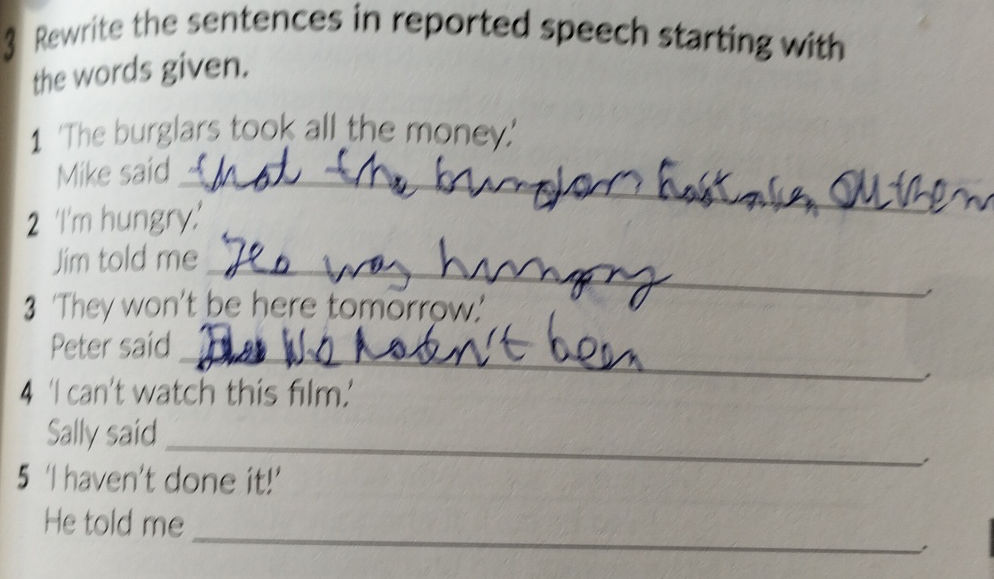 3 Rewrite the sentences in reported speech starting with
the words given.
1 'The burglars took all the money.'
Mike said that the
2 'I'm hungry.'
Jim told me was hungry
3 'They won't be here tomorrow.'
Peter said been
4 'I can't watch this film.'
Sally said
5 'I haven't done it!'
He told me